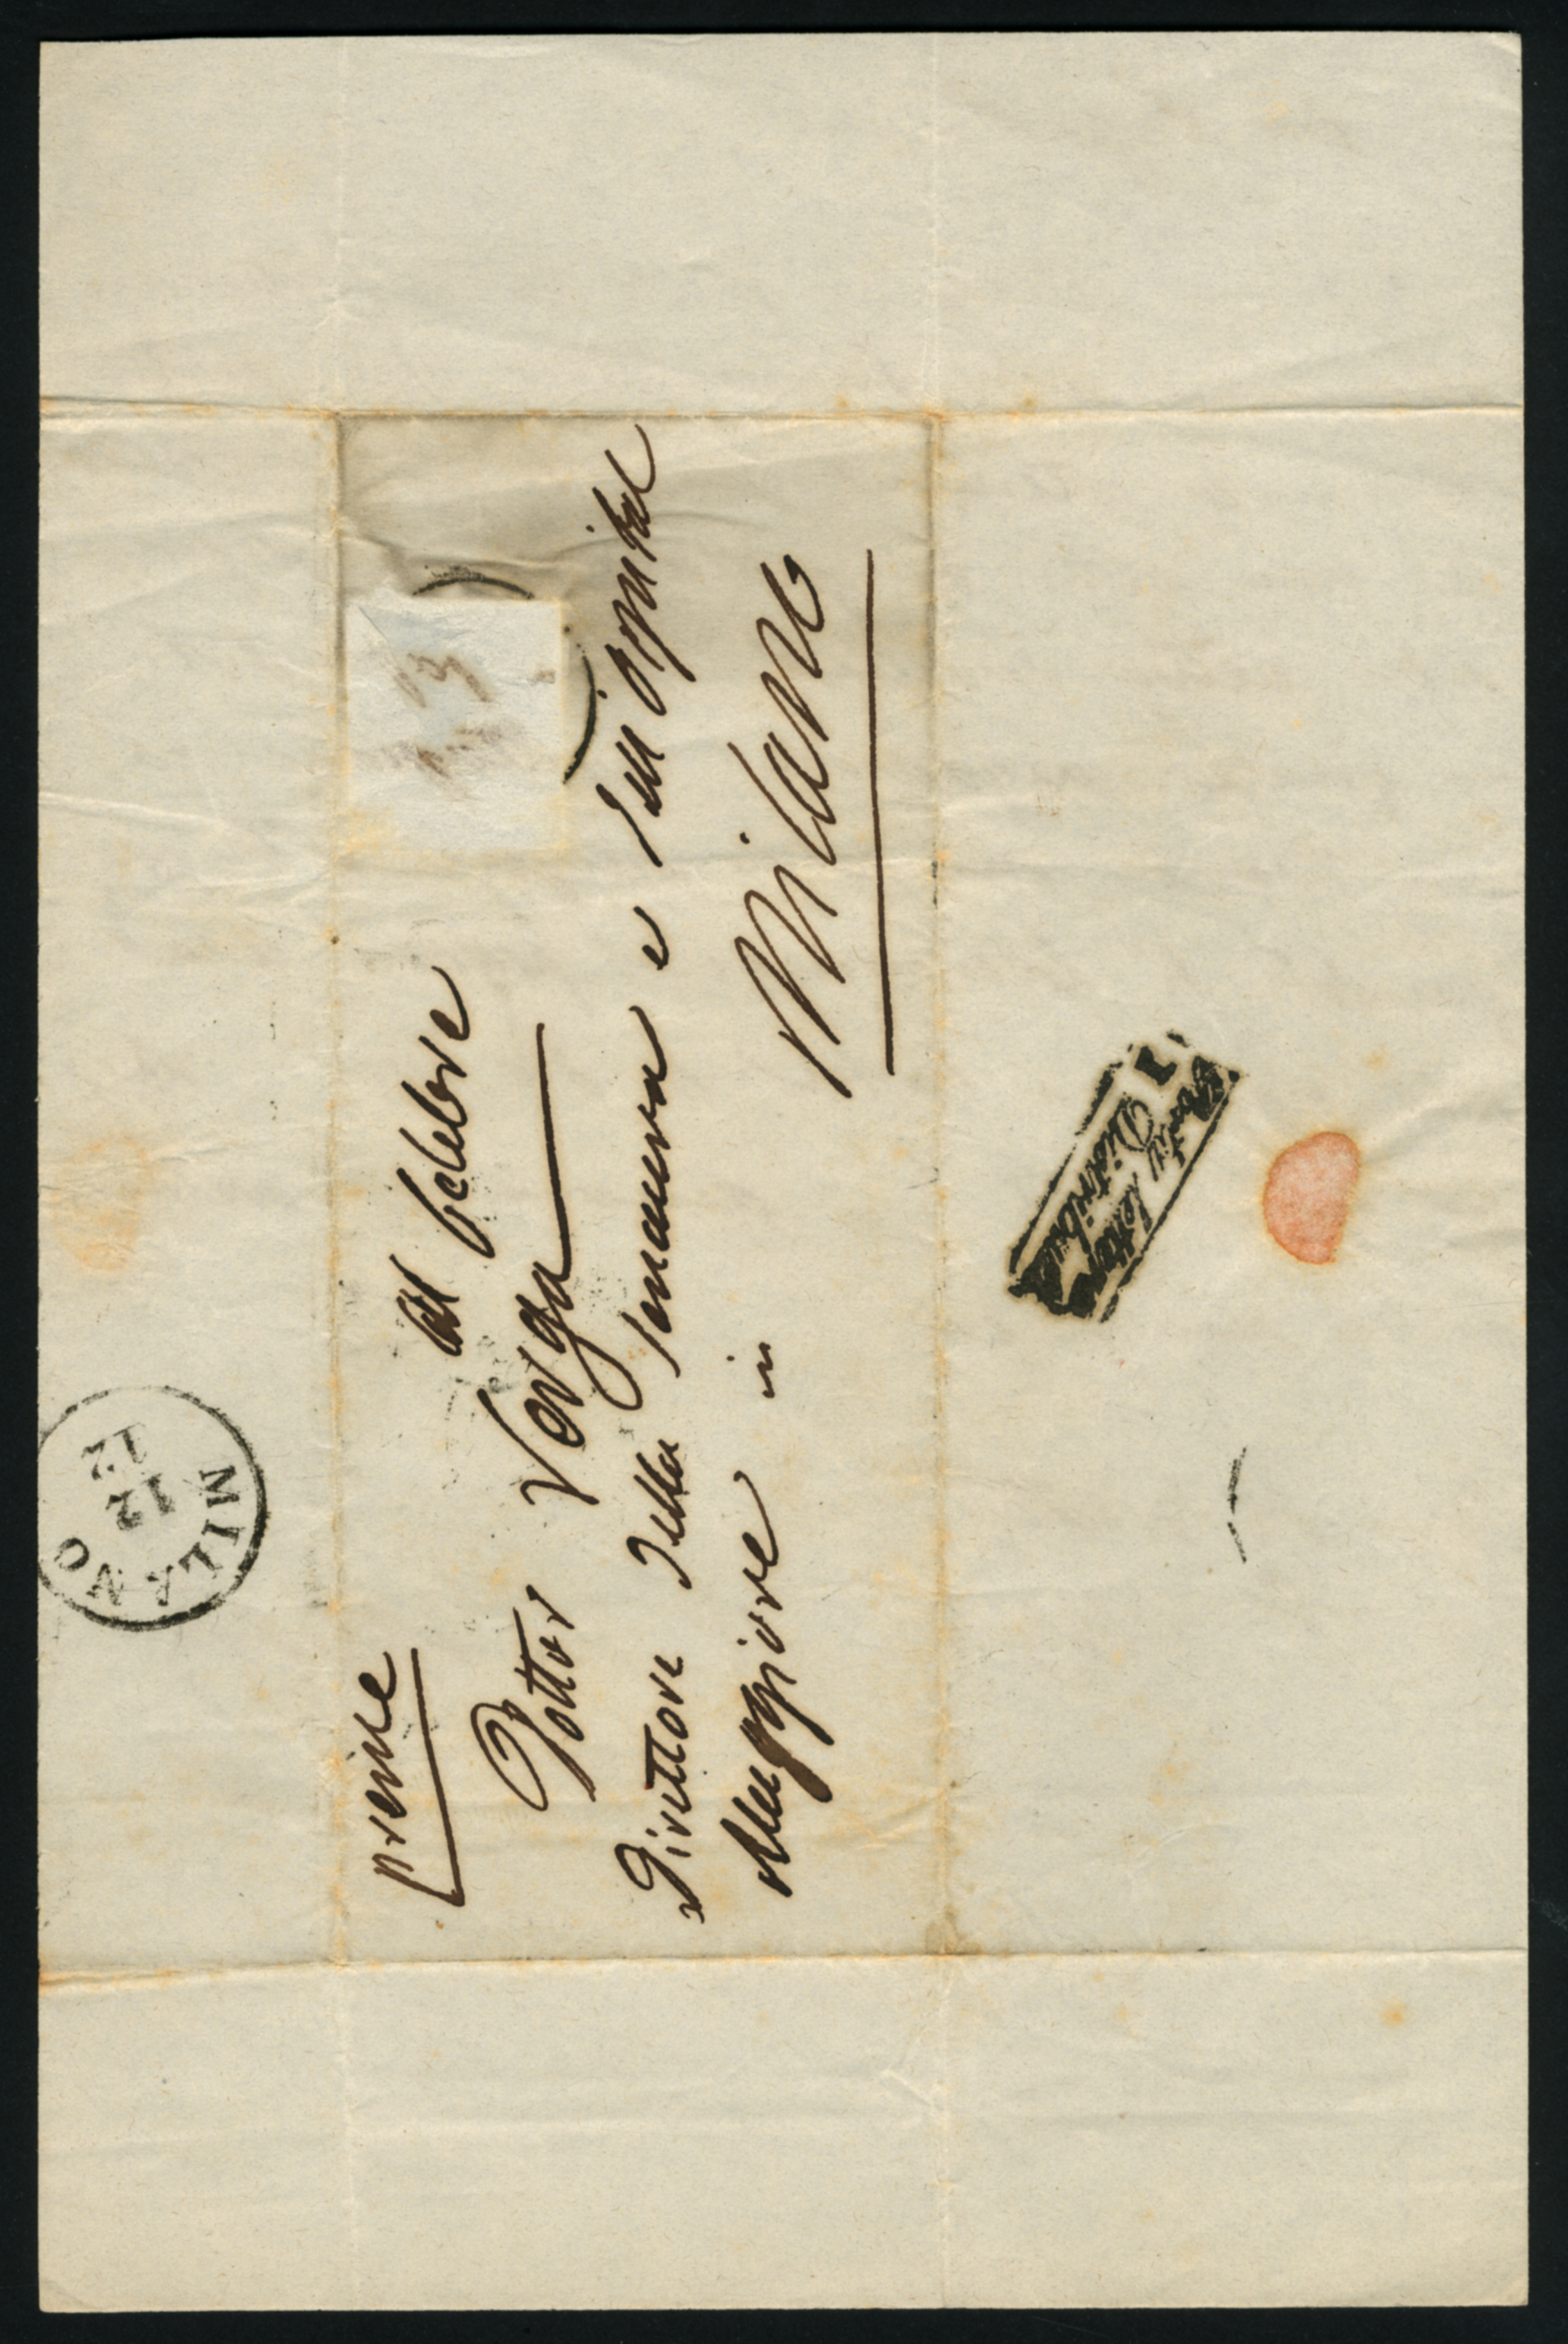 preme
Al Celebre
Dottor Verga
Direttore della Senavra e dell'ospital
Maggiore in
Milano
MILANO
12
12
Distribuz
I